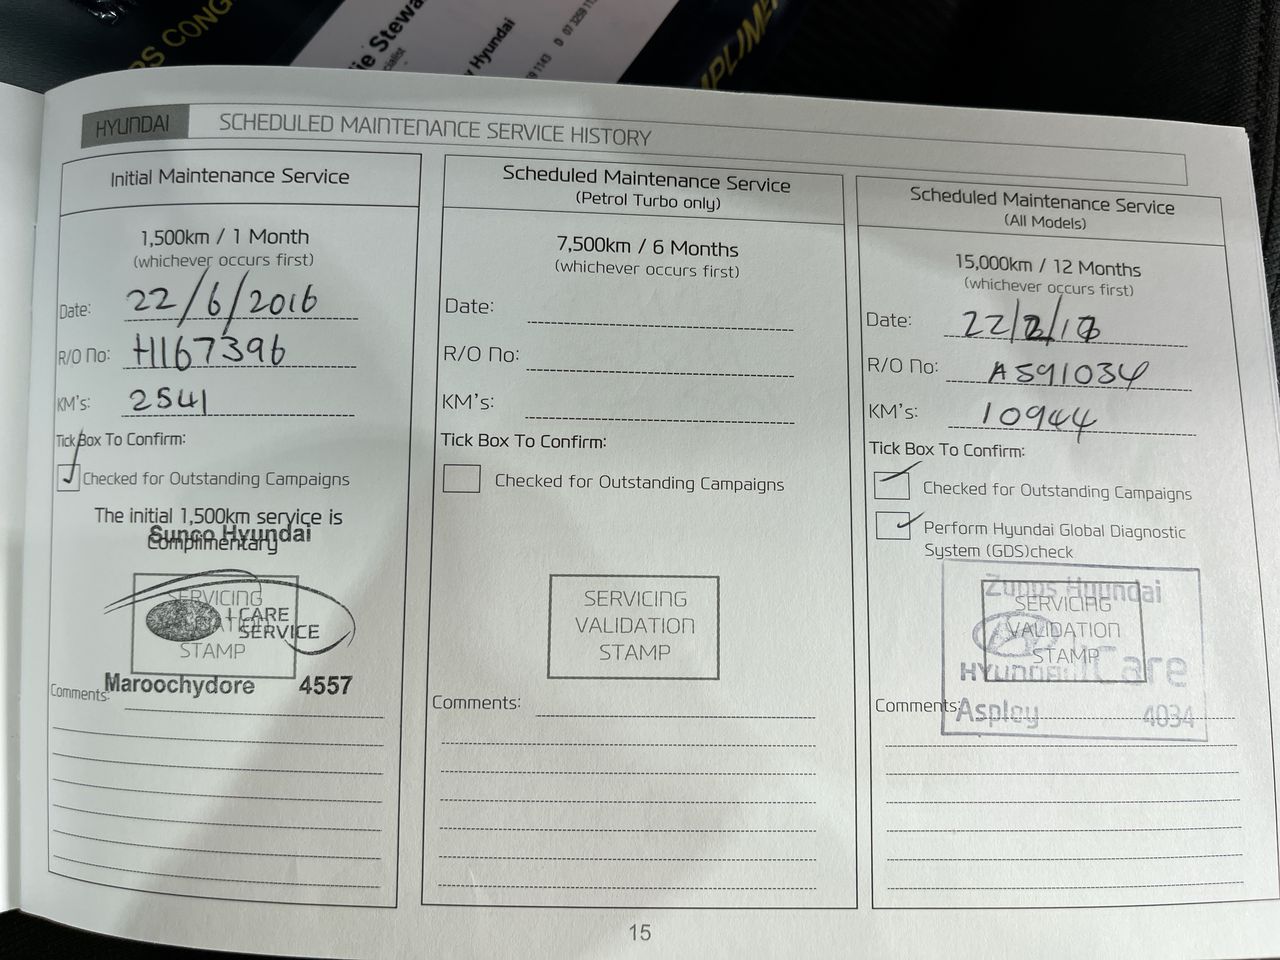 RS CONG
ie Stewa
ialist
y Hyundai
9 1143 D 07 3259 11
MPLIMEN
HYUNDAI SCHEDULED MAINTENANCE SERVICE HISTORY
Initial Maintenance Service
1,500km / 1 Month
(whichever occurs first)
Date: 22/6/2016
R/O No: H167396
KM's: 2541
Tick Box To Confirm:
Checked for Outstanding Campaigns
The initial 1,500km service is
Complimentary
Sunco Hyundai
SERVICING
STAMP
iCARE
SERVICE
Maroochydore 4557
Comments:
Scheduled Maintenance Service
(Petrol Turbo only)
7,500km / 6 Months
(whichever occurs first)
Date:
R/O No:
KM's:
Tick Box To Confirm:
Checked for Outstanding Campaigns
SERVICING
VALIDATION
STAMP
Comments:
Scheduled Maintenance Service
(All Models)
15,000km / 12 Months
(whichever occurs first)
Date: 22/2/17
R/O No: A591034
KM's: 10944
Tick Box To Confirm:
Checked for Outstanding Campaigns
Perform Hyundai Global Diagnostic
System (GDS)check
Zupps Hyundai
SERVICING
VALIDATION
STAMP
HYUNDAI iCare
Aspley 4034
Comments:
15